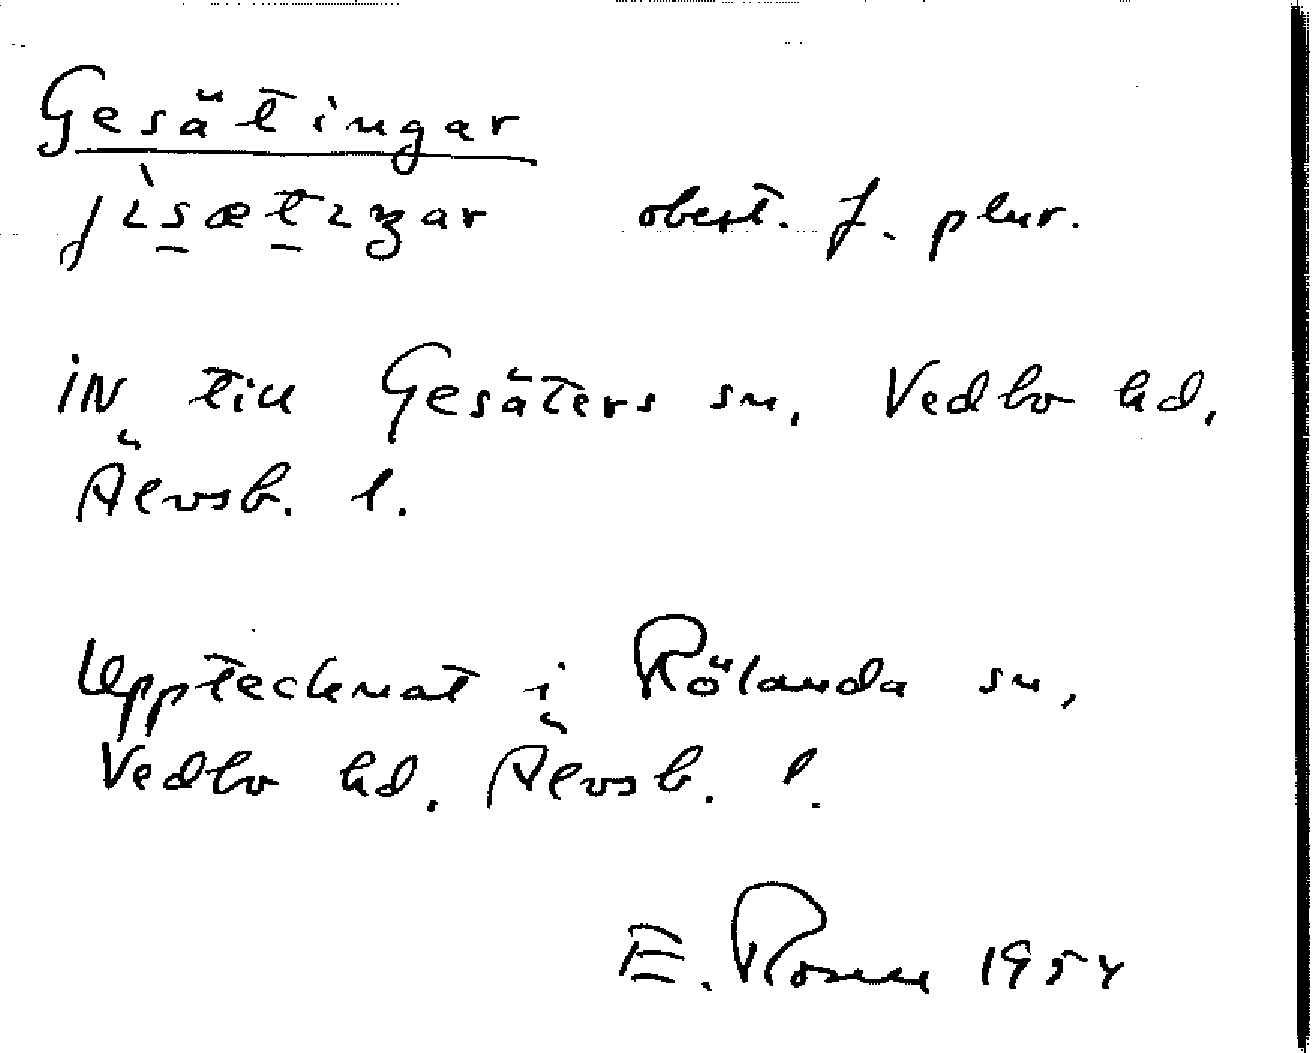 Gesätingar
jìsætıŋar obest. f. plur.
iN till Gesäters sn, Vedbo hd,
Älvsb. l.
Upptecknat i Rölanda sn,
Vedbo hd. Älvsb. l.
E. 1954